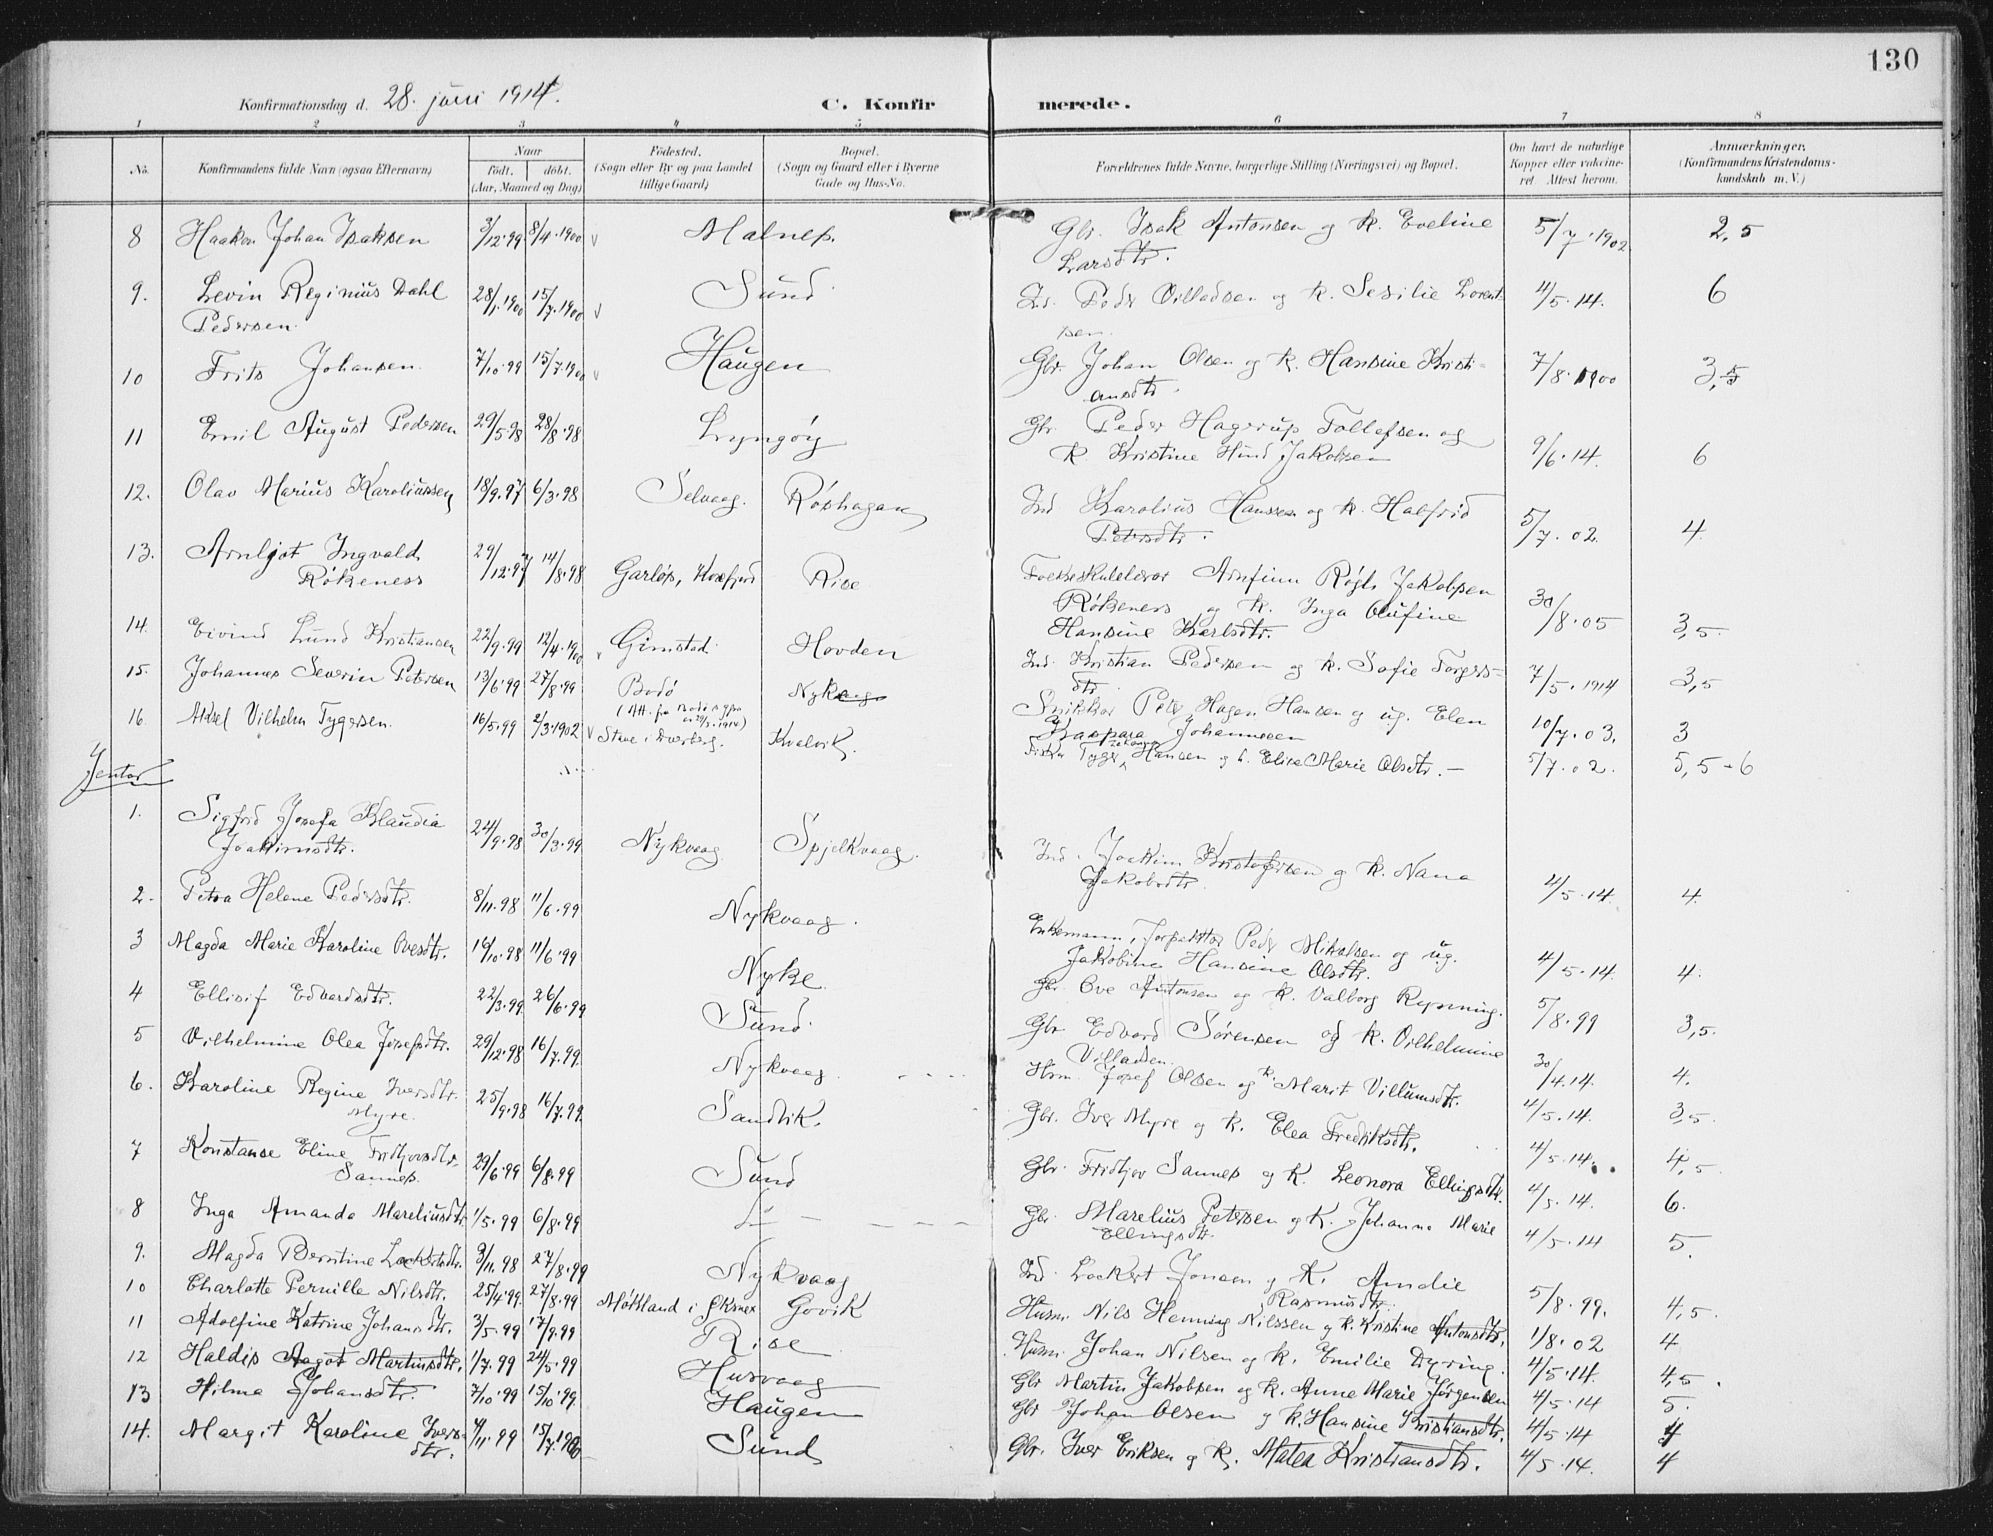 130
Konfirmationsdag d. 28. juni 1914.
C. Konfirmerede.
1 2 3 4 5 6 7 8
No.
Konfirmandens fulde Navn (ogsaa Efternavn)
Naar
født. døbt.
(Aar, Maaned og Dag)
Fødested.
(Sogn eller By og paa Landet
tillige Gaard)
Bopæl.
(Sogn og Gaard eller i Byerne
Gade og Hus-No.
Forældrenes fulde Navne, borgerlige Stilling (Næringsvei) og Bopæl.
Om havt de naturlige
Kopper eller vaccine-
ret. Attest herom.
Anmærkninger.
(Konfirmandens Kristendoms-
kundskab m. V.)
8 Haakon Johan Isaksen 3/12.99 8/4.1900 Malnes. Gbr. Isak Antonsen og k. Eveline 5/7.1902 2,5
Larsdtr.
9. Levin Reginius Dahl 28/1.1900 15/7.1900 Sund Ind. Peder Villadsen og k. Sesilie Lorent- 4/5.14. 6
Pedersen. sen.
10 Frits Johansen. 7/10.99 15/7.1900 Haugen Gbr. Johan Olsen og k. Hansine Kristi- 7/8.1900 3,5
ansdtr.
11 Emil August Pedersen 29/5.98 28/8.98 Lyngøy Gbr. Peder Hagerup Tollefsen og 9/6.14. 6
k. Kristine Hind Jakobsen
12. Olav Marius Karoliussen 18/9.97 6/3.98 Selvaag. Røshagen Ind Karolius Hanssen og k. Halfrid 5/7.02. 4
Petersdtr.
13. Arnljot Ingvald 29/12.97 14/8.98 Kvæfjord Rise Arnfinn Jakobsen 30/8.05 3,5.
Røkeness Røkeness og k. Inga Olufine
Hansine Karlsdtr.
14. Eivind Lund Kristiansen 22/9.99 12/4.1900 Gimstad. Hovden Ind. Kristian Pedersen og k. Sofie Torgers- 7/5.1914 3,5
dtr.
15. Johannes Severin Petersen 13/6.99 27/8.99 Bodø Nykvaag Snikker Peter Hagen Hansen og ug. Elen 10/7.03. 3
Kaspara Johannesen
16. Aksel Vilhelm Tygersen. 16/5.99 2/3.1902 Stave i Dverberg. Kvalvik. Fisker Tyger Hansen og k. Elisa Marie Olsdtr. 5/7.02. 5,5-6
Jenter
1. Sigfrid Josefa Klaudia 24/9.98 30/3.99 Nykvaag Spjelkvaag. Ind. Joakim Kristofersen og k. Nana 4/5.14. 4.
Joakimsdtr. Jakobsdtr.
2. Petra Helene Pedersdtr. 8/11.98 11/6.99 Nykvaag. Enkemann, Peder Mikalsen og ug. 4/5.14. 4.
Jakobine Hansine Olsdtr.
3 Magda Marie Karoline Ovesdtr. 16/10.98 11/6.99 Nyke Gbr. Ove Antonsen og k. Valborg Rypning. 5/8.99 3,5.
4 Ellisif Edvardsdtr. 22/3.99 26/6.99 Sund Gbr. Edvard Sørensen og k. Vilhelmine 30/4.14. 4.
Villadsen.
5 Vilhelmine Olea Josefsdtr. 29/12.98 16/7.99. Nykvaag Hsm. Josef Olsen og k. Marit Villumsdtr. 4/5.14. 3,5.
6. Karoline Regine Iversdtr. 25/9.98 16/7.99. Sandvik. Gbr. Iver Myre og k. Elea Fredriksdtr. 4/5.14. 4,5.
Myre.
7 Konstanse Eline Fridtjovsdtr. 29/6.99 6/8.99 Sund Gbr. Fridtjov Sannes og K. Leonora Ellingsdtr. 4/5.14. 6.
Sannes.
8 Inga Amanda Mareliusdtr. 1/5.99 6/8.99 Gbr. Marelius Petersen og K. Johanna Marie 4/5.14 5.
Ellingsdtr.
9. Magda Berntine Lockertsdtr. 3/11.98 27/8.99 Nykvaag Ind. Lockert Jonsen og K. Amalie 5/8.99. 4,5.
Rasmusdtr.
10 Charlotte Pernille Nilsdtr. 25/4.99. 27/8.99 Møkland i Øksnes Govik Husm. Nils Henning Nilssen og k. Kristine Antonsdtr. 1/8.02 4
11 Adolfine Katrine Johansdtr. 3/5.99 17/9.99 Rise Husm. Johan Nilsen og k. Emilie Dyring. 4/5.14. 4,5.
12 Haldis Aagot Martinsdtr. 1/7.99 24/5.99 Husvaag Gbr Martin Jakobsen og k. Anne Marie Jørgensen 4/5.14 5.
13 Hilma Johansdtr. 7/10.99 15/10.99. Haugen Gbr Johan Olsen og k. Hansine Kristiansdtr. 4/5.14 4
14. Margit Karoline Ivers- 4/11.99 15/7.1900 Sund Gbr. Iver Eriksen og k. Matea Kristiansdtr. 4/5.14. 4
dtr.